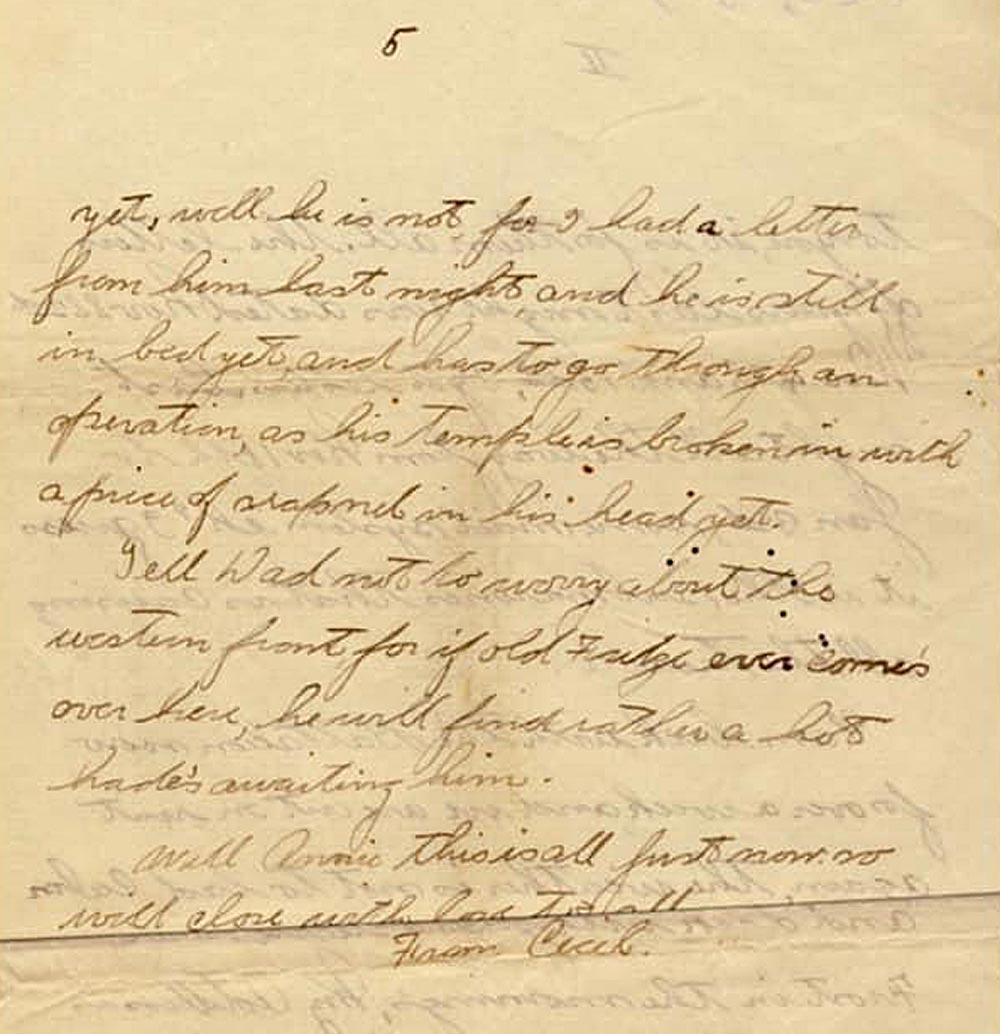 5
yet, well he is not for I had a letter
from him last night and he is still
in bed yet, and has to go through an
operation, as his temple is broken in with
a piece of srapnel in his head yet.
Tell Dad not to worry about the
western front for if old Fritze ever come's
over here, he will find rather a hot
hade's awaiting him.
Well Annie this is all just now so
will close with love to all
From Cecil.